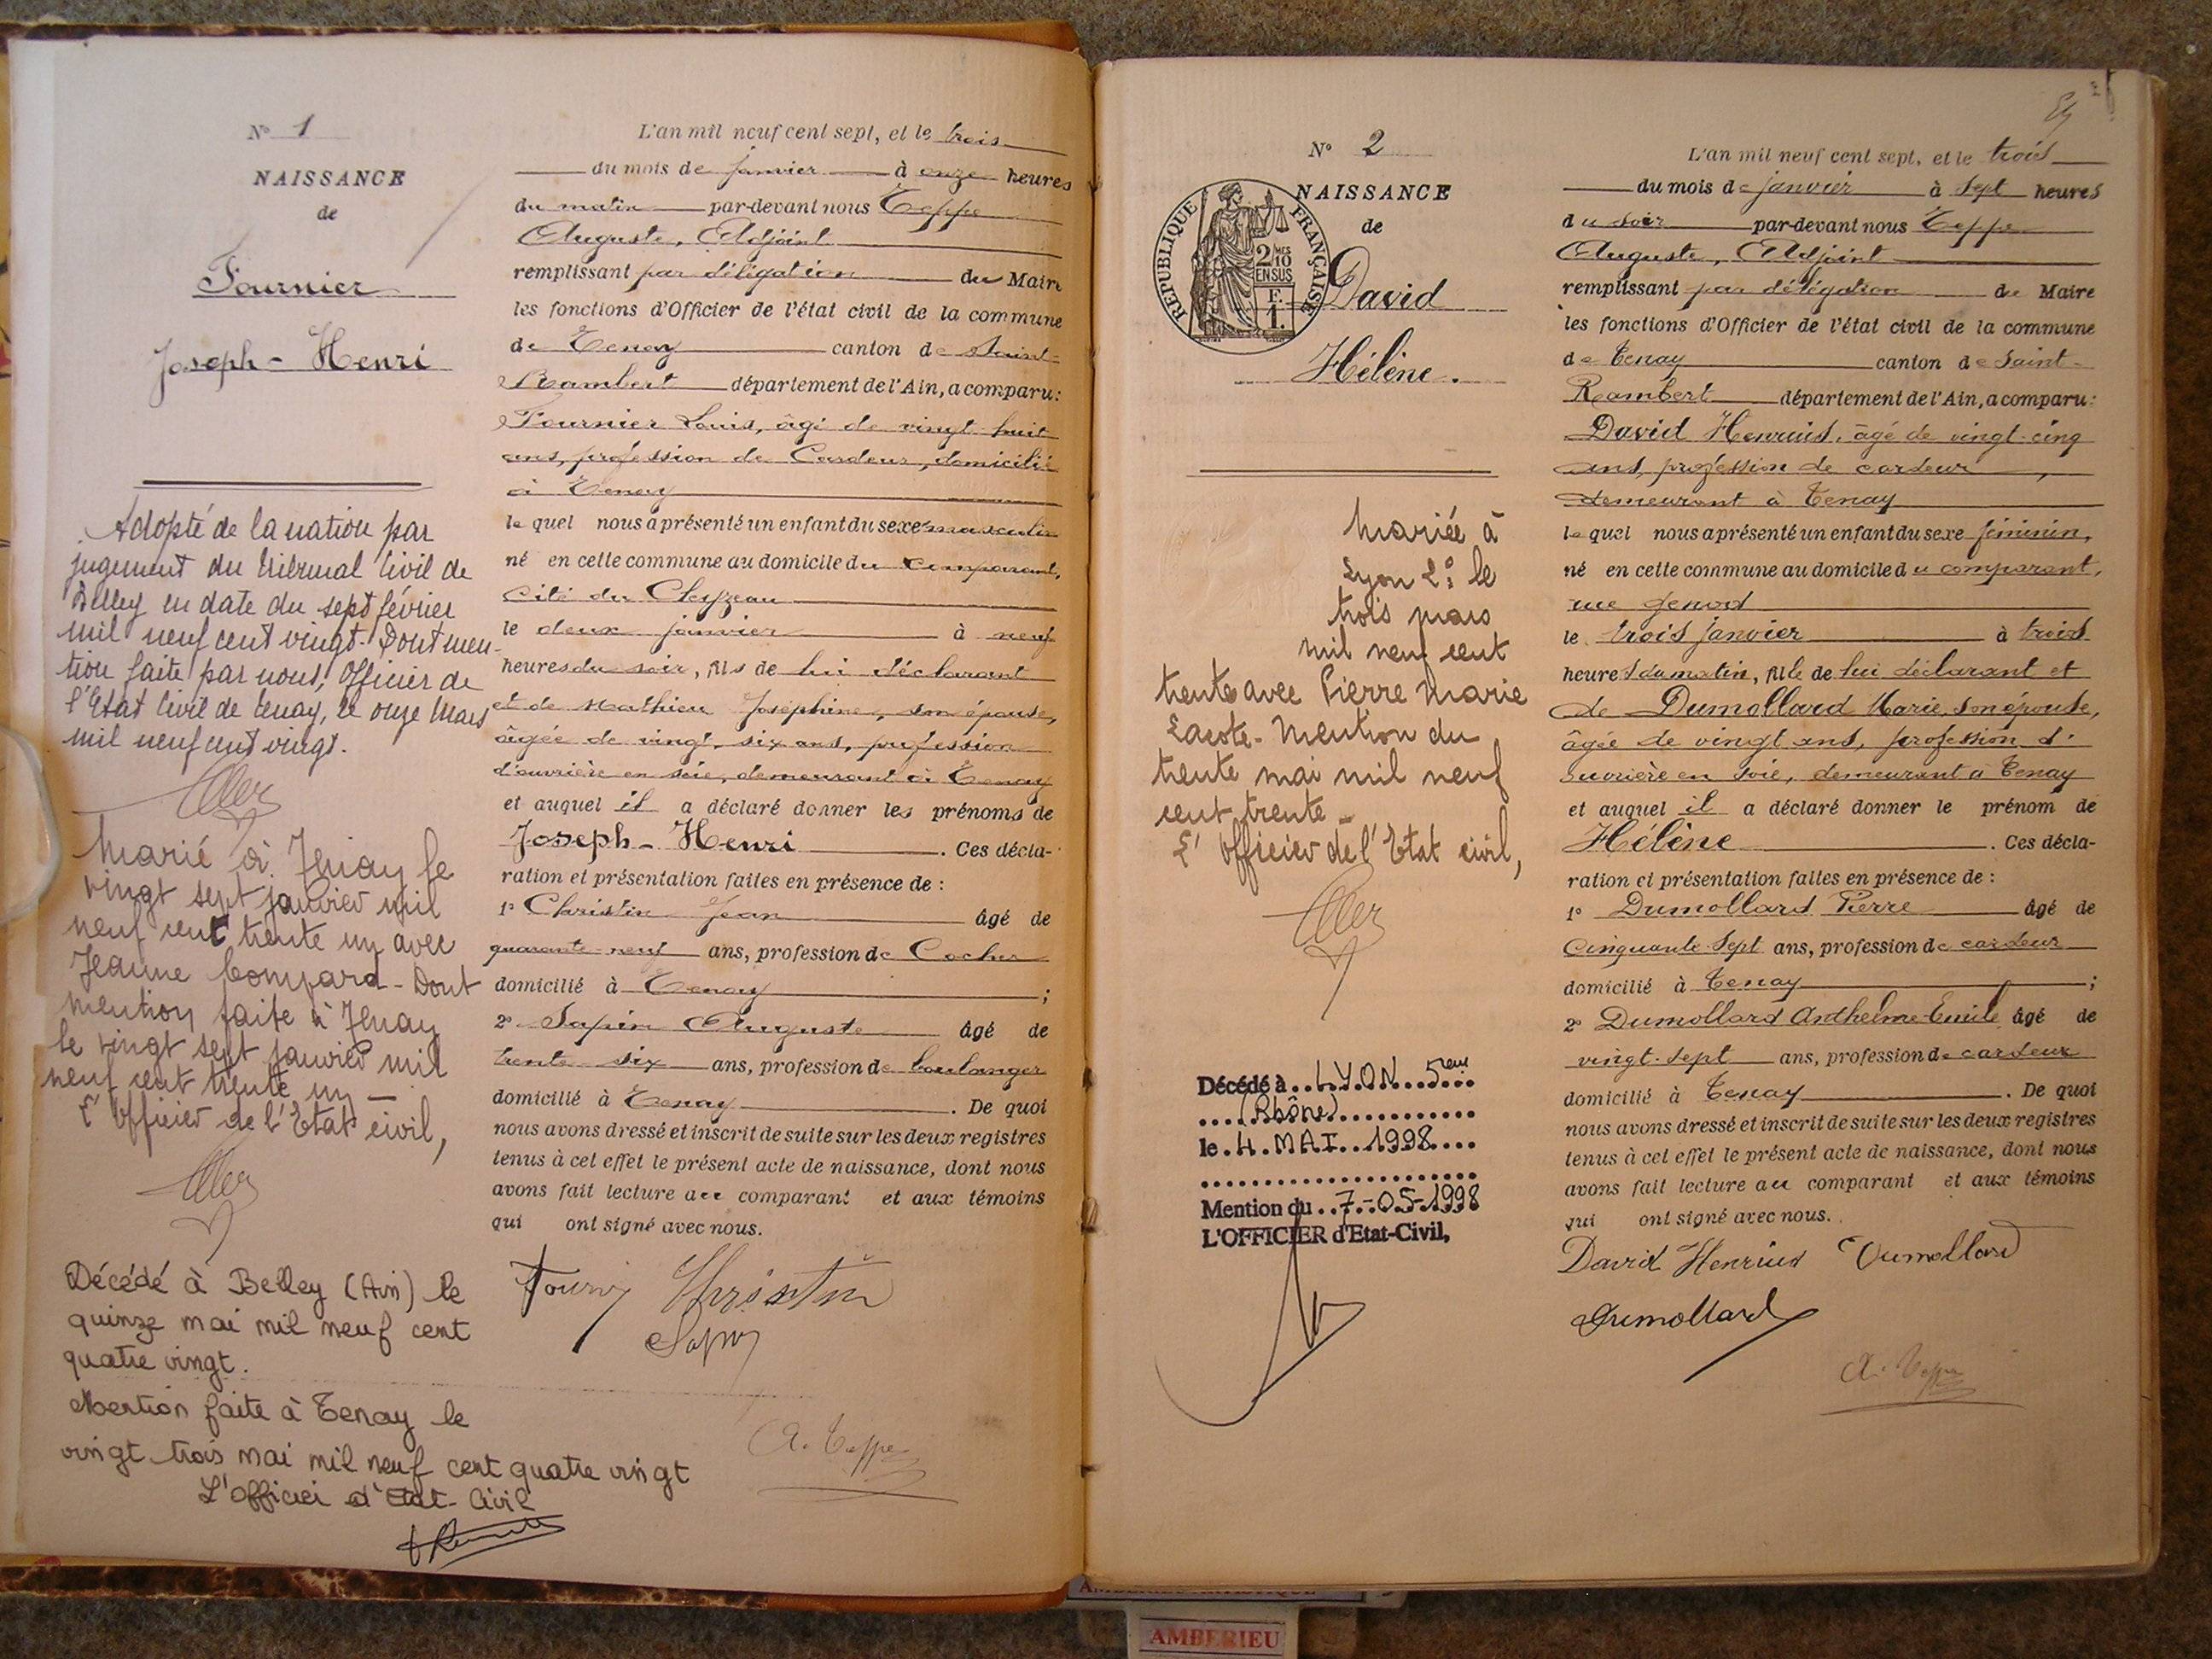 N° 1
NAISSANCE
de
Fournier
Joseph-Henri
Adopté de la nation par
jugement du Tribunal Civil de
Belley en date du sept février
mil neuf cent vingt. Dont men-
tion faite par nous, Officier de
l'Etat Civil de Tenay, le onze Mars
mil neuf cent vingt.
Marié à Tenay le
vingt sept janvier mil
neuf cent trente un avec
Jeanne Compard - Dont
mention faite à Tenay
le vingt sept janvier mil
neuf cent trente un -
L'Officier de l'Etat civil,
Décédé à Belley (Ain) le
quinze mai mil neuf cent
quatre vingt.
Mention faite à Tenay le
vingt trois mai mil neuf cent quatre vingt
L'Officier d'Etat-Civil
L'an mil neuf cent sept, et le trois
du mois de janvier à onze heures
du matin par-devant nous Teppe
Auguste, Adjoint
remplissant par délégation du Maire
les fonctions d'Officier de l'état civil de la commune
de Tenay canton de Saint-
Rambert département de l'Ain, a comparu:
Fournier Louis, âgé de vingt huit
ans, profession de Cardeur, domicilié
à Tenay
le quel nous a présenté un enfant du sexe masculin
né en cette commune au domicile du comparant,
Cité du Cleyzeau
le deux janvier à neuf
heures du soir, fils de lui déclarant
et de Mathieu Joséphine, son épouse,
âgée de vingt six ans, profession
d'ouvrière en soie, demeurant à Tenay
et auquel il a déclaré donner les prénoms de
Joseph-Henri . Ces décla-
ration et présentation faites en présence de :
1° Christin Jean âgé de
quarante-neuf ans, profession de Cocher
domicilié à Tenay ;
2° Sapin Auguste âgé de
trente six ans, profession de boulanger
domicilié à Tenay . De quoi
nous avons dressé et inscrit de suite sur les deux registres
tenus à cet effet le présent acte de naissance, dont nous
avons fait lecture au comparant et aux témoins
qui ont signé avec nous.
Christin
A. Teppe
N° 2
NAISSANCE
de
REPUBLIQUE FRANÇAISE
2/10
EN SUS
F.
1.
David
Hélène.
mariée à
Lyon 2° le
trois mars
mil neuf cent
trente avec Pierre Marie
Lacote - Mention du
trente mai mil neuf
cent trente -
L'Officier de l'Etat civil,
Décédé à LYON 5eme
(Rhône)
le 4 MAI 1998
Mention du 7-05-1998
L'OFFICIER d'Etat-Civil,
L'an mil neuf cent sept, et le trois
du mois de janvier à sept heures
du soir par-devant nous Teppe
Auguste, Adjoint
remplissant par délégation du Maire
les fonctions d'Officier de l'état civil de la commune
de Tenay canton de Saint-
Rambert département de l'Ain, a comparu:
David Henrius, âgé de vingt-cinq
ans, profession de cardeur,
demeurant à Tenay
le quel nous a présenté un enfant du sexe féminin,
né en cette commune au domicile du comparant,
rue
le trois janvier à trois
heures du matin, fille de lui déclarant et
de Dumollard Marie, son épouse,
âgée de vingt ans, profession d'
ouvrière en soie, demeurant à Tenay
et auquel il a déclaré donner le prénom de
Hélène . Ces décla-
ration et présentation faites en présence de :
1° Dumollard Pierre âgé de
cinquante-sept ans, profession de cardeur
domicilié à Tenay ;
2° Dumollard Anthelme-Emile âgé de
vingt-sept ans, profession de cardeur
domicilié à Tenay . De quoi
nous avons dressé et inscrit de suite sur les deux registres
tenus à cet effet le présent acte de naissance, dont nous
avons fait lecture au comparant et aux témoins
qui ont signé avec nous.
David Henrius Dumollard
Dumollard
A. Teppe
AMBERIEU